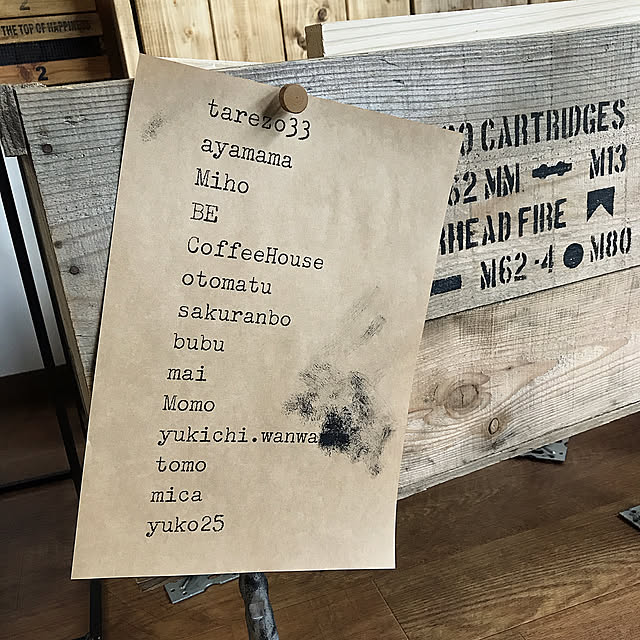 2
THE TOP OF HAPPINESS
2
tarezo33
ayamama
Miho
BE
CoffeeHouse
otomatu
sakuranbo
bubu
mai
Momo
yukichi.wanwa
tomo
mica
yuko25
CARTRIDGES
62 MM. M13
HEAD FIRE
M62-4 M80